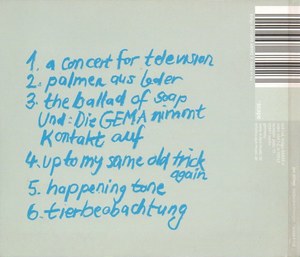 1. a concert for television
2. palmen aus leder
3. the ballad of soap
und: Die GEMA nimmt
Kontakt auf
4. up to my same old trick
again
5. happening tone
6. tierbeobachtung